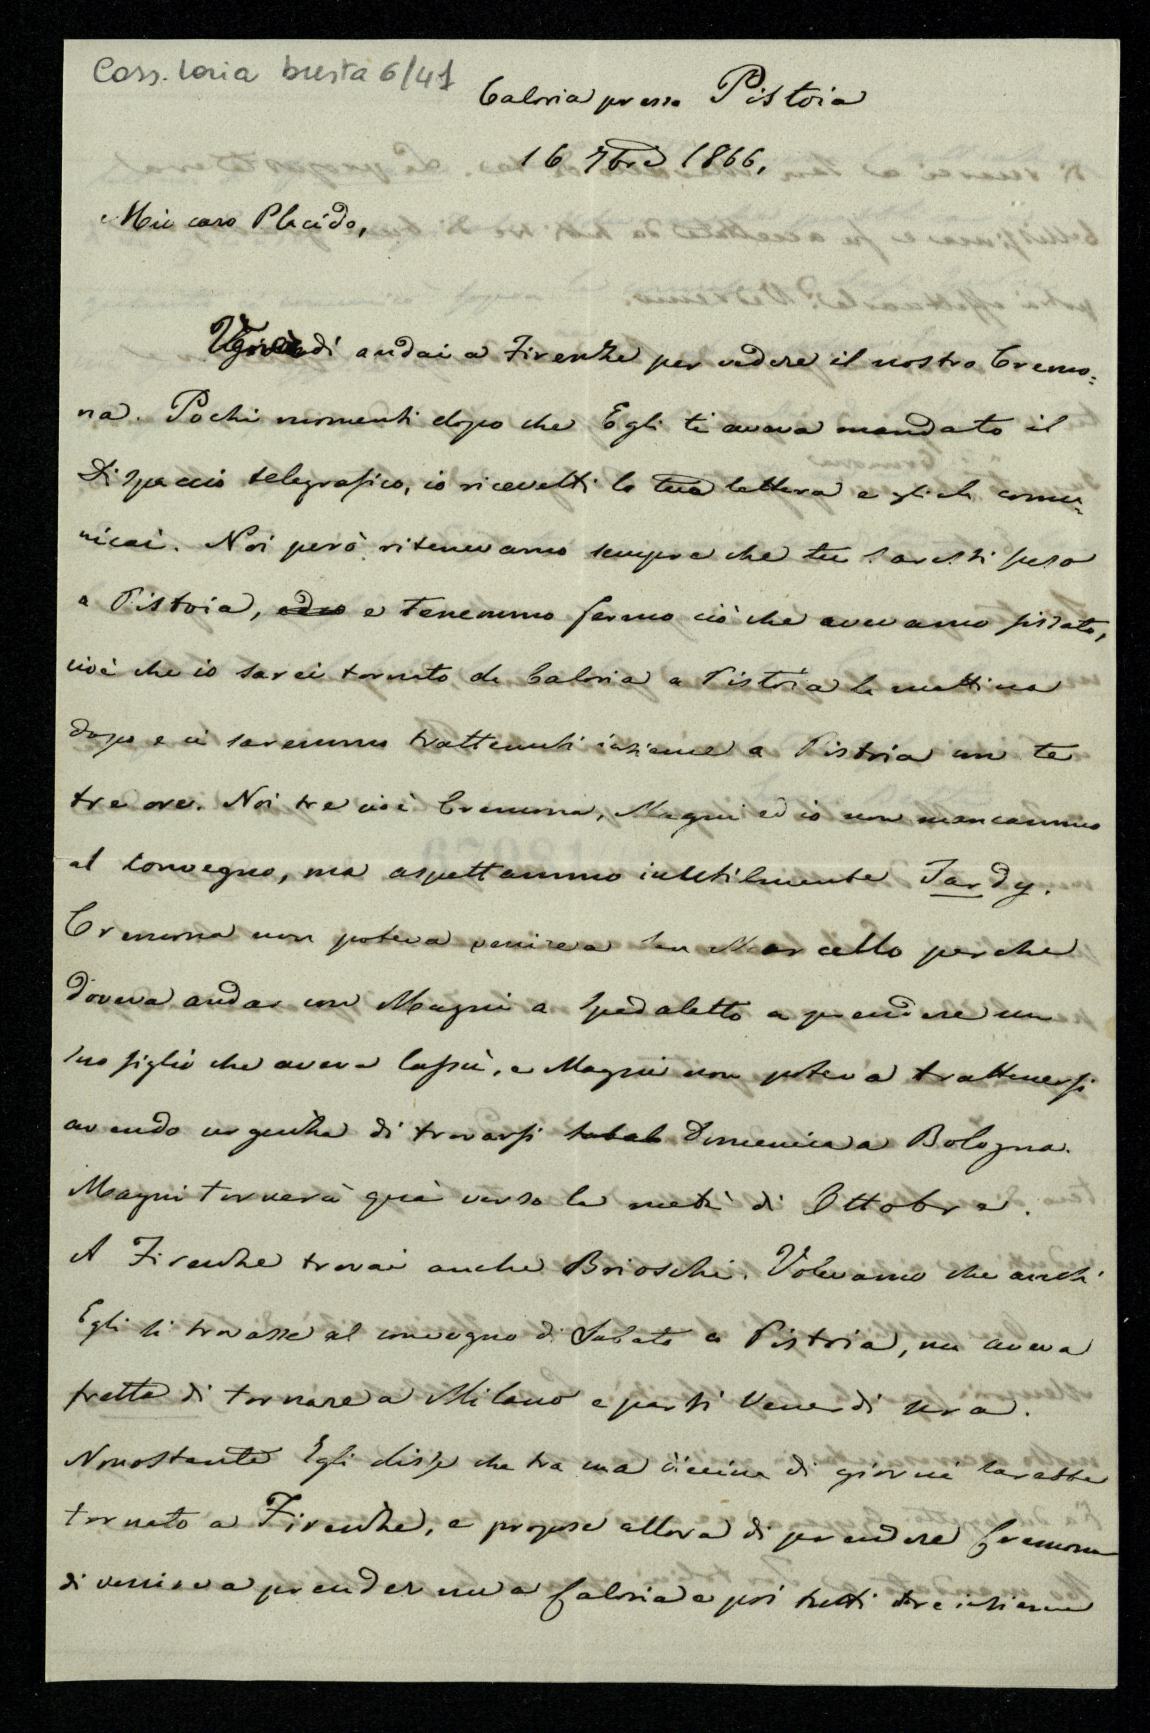 Cass. Loria busta 6/41
Caloria presso Pistoia
16 7bre 1866.
Mio caro Placido,
Venerdi andai a Firenze per vedere il nostro Cremo=
na. Pochi momenti dopo che Egli ti aveva mandato il
Dispaccio telegrafico, io ricevetti la tua lettera e gli la comu=
nicai. Noi però ritenevamo sempre che tu saresti
a Pistoia, e tenemmo fermo ciò che avevamo fissato,
cioè che io sarei tornato da Caloria a Pistoia la mattina
dopo e ci saremmo trattenuti insieme a Pistoia con te
tre ore. Noi tre cioè Cremona, Magni ed io non mancammo
al convegno, ma aspettammo inutilmente Tardy.
Cremona non poteva venire a San Marcello perche
doveva andar con Magni a Spedaletto a prendere un
suo figlio che aveva lassù, e Magni non poteva trattenersi
avendo urgenza di trovarsi Domenica a Bologna.
Magni tornerà quà verso la metà di Ottobre.
A Firenze trovai anche Brioschi. Volevamo che anch'
Egli si trovasse al convegno di Sabato a Pistoia, ma aveva
fretta di tornare a Milano e partì Venerdi sera.
Nonostante Egli disse che tra una diecina di giorni sarebbe
tornato a Firenze, e propose allora di prendere Cremona
di venire a prender me a Caloria e poi tutti tre insieme